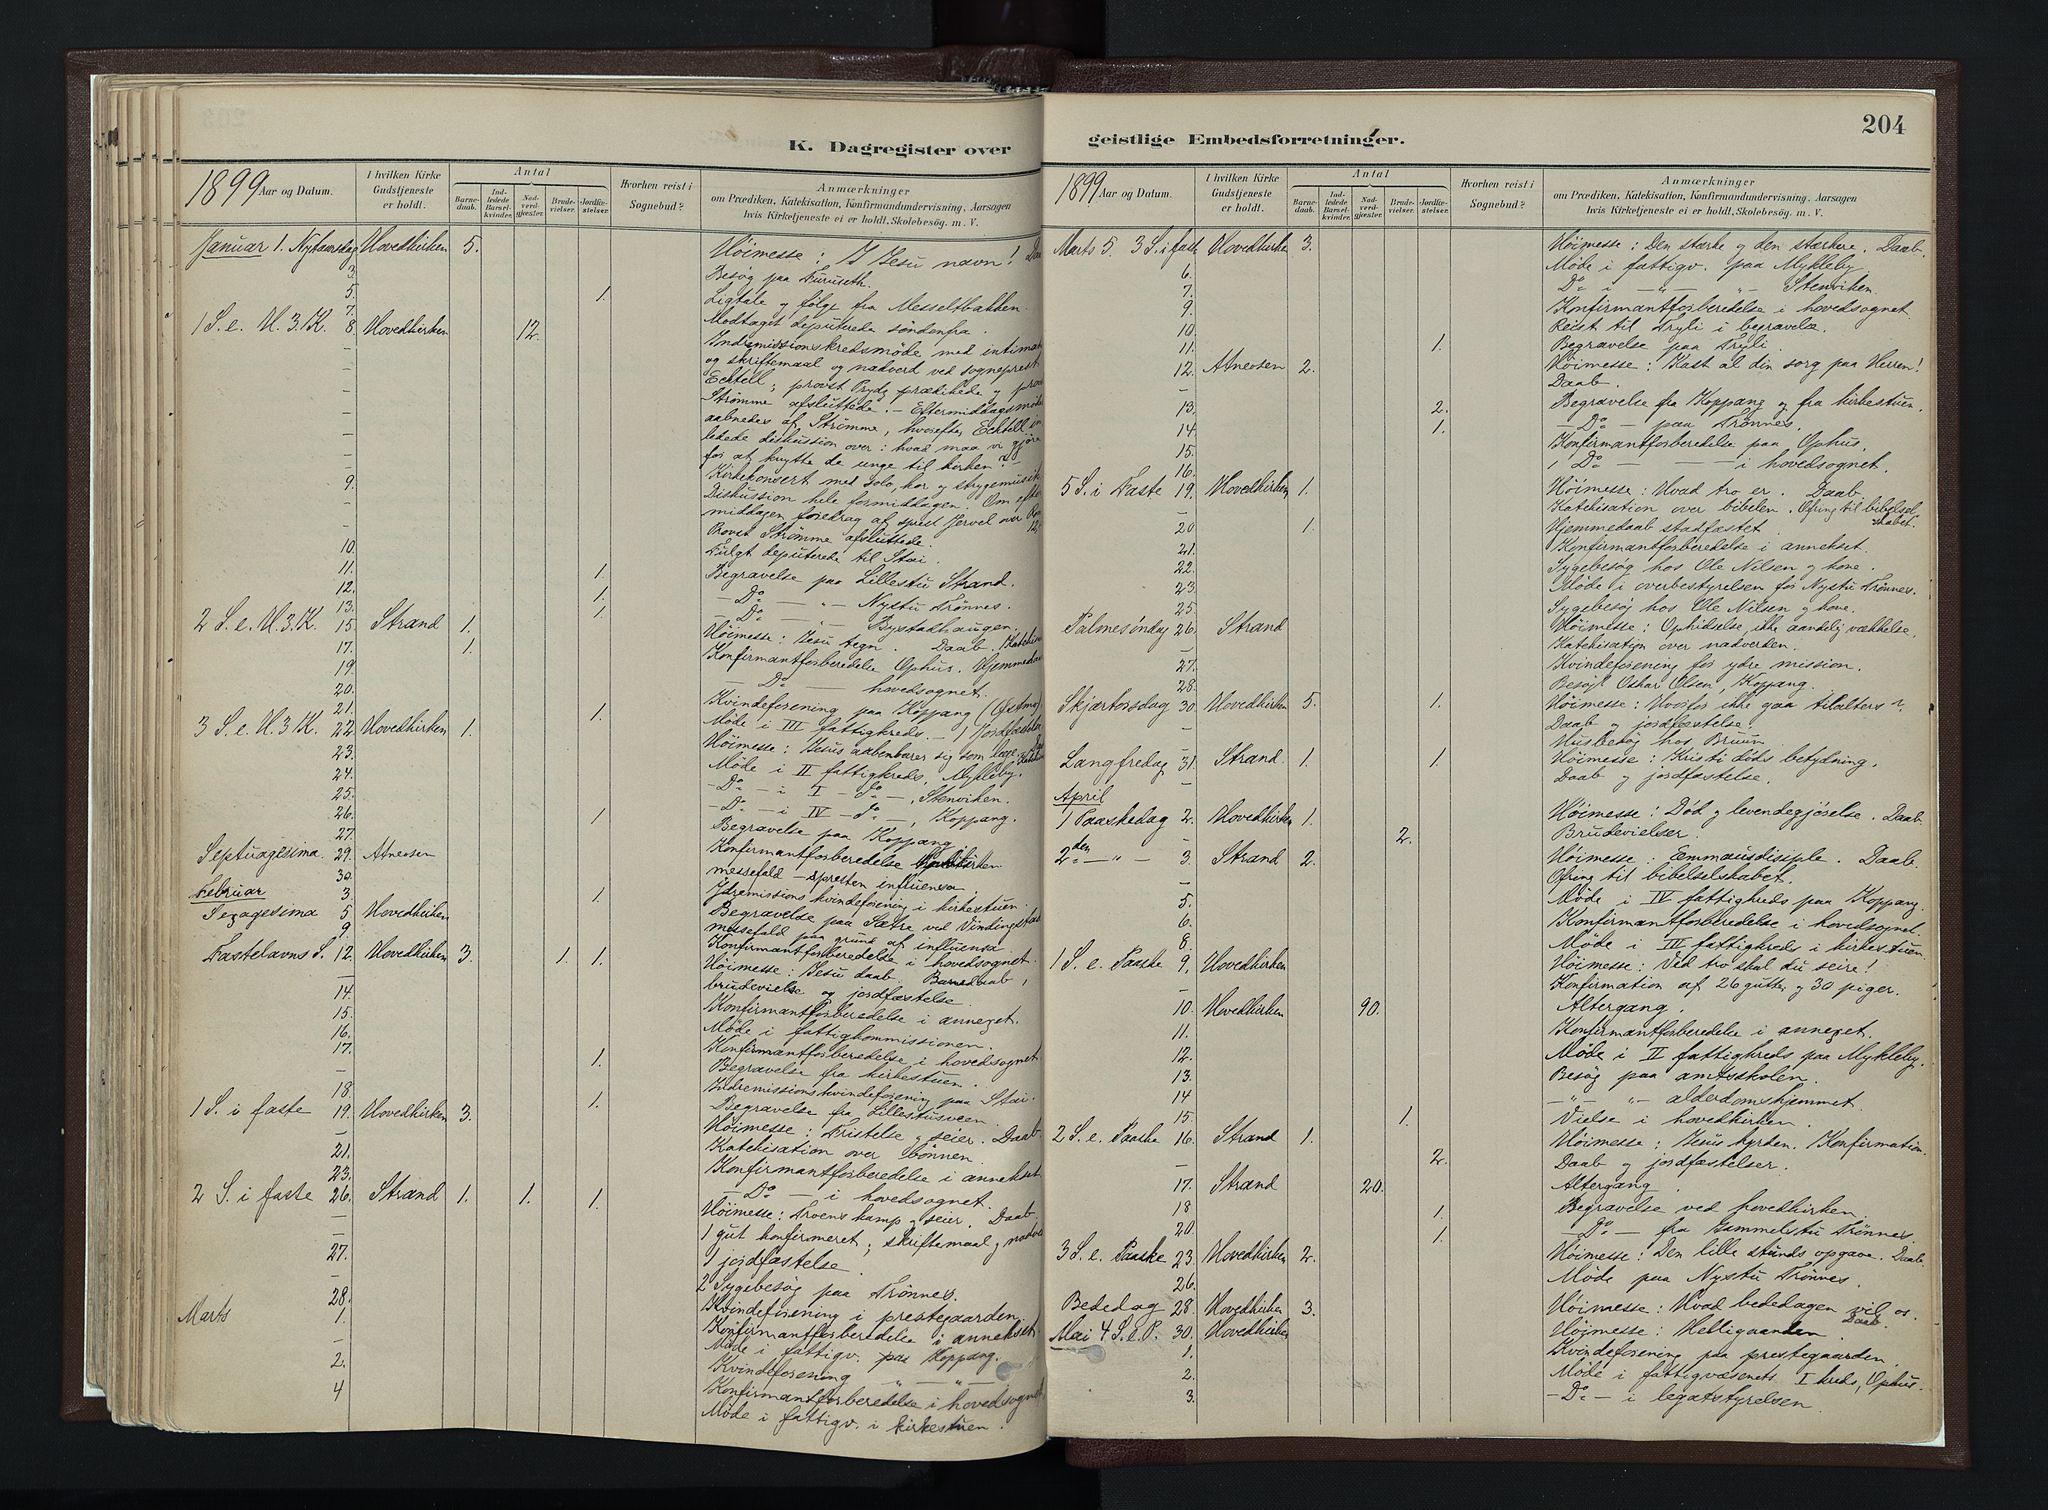 K. Dagregister over
1899 Aar og Datum.
I hvilken Kirke Gudstjeneste er holdt.
Antal
Barne-daab.
Ind-ledede Barsel-kvinder.
Nad-verd-gjester.
Brude-vielser.
Jordfæ-stelser.
Hvorhen reist i Sognebud?
Anmærkninger
om Prædiken, Katekisation, Konfirmandundervisning, Aarsagen
hvis Kirketjeneste ei er holdt, Skolebesøg. m. V.
Januar 1. Nytaarsdag Hovedkirken 5. Høimesse: I Jesu navn!
3. Besøg paa Furuseth.
5. 1. Ligtale og følge fra Messeltbakken.
7. Modtaget deputerede søndenfra.
1 S. e. H. 3. K. 8. Hovedkirken 12. Indremissionskredsmøde med
og skriftemaal og nadverd ved sogneprest
Echtell; provst Pryds prædikede og
Strømme afsluttede. – Eftermiddagsmøde
aabnedes af Strømme, hvorefter Echtell in
ledede diskussion over: hvad maa vi gjøre
for at knytte de unge til kirken? –
9. Kirkekonsert med solo, kor og strygemusik
Diskussion hele formiddagen. Om efter
middagen foredrag af sprest Jervel over
Provst Strømme afsluttede.
10. Fulgt deputerede til Stai.
11. 1. Begravelse paa Lillestu Strand.
12. 1. – Do – " – Nystu Trønnes.
13. 1. – Do Bystadhaugen.
2 S. e. H. 3. K. 15. Strand 1. Høimesse: Jesu tegn. Daab.
17. 1. Konfirmantforberedelse Ophus. Hjemmedaab
19. – Do – hovedsognet.
20. Kvindeforening paa Koppang (Østmo)
21. 1. Møde i III fattigkreds. – 1 jordfæstelse
3 S. e. H. 3 K. 22 Hovedkirken 1. Høimesse: Jesus aabenbarer sig som
23. Møde i II fattigkreds, Mykleby.
24. – Do – i I – Do – , Stenviken.
25. – Do – i IV – Do – , Koppang.
26. 1. Begravelse paa Koppang
27. Konfirmantforberedelse
Septuagesima 29. Atneosen messefald – presten influensa.
30. Ydremissions kvindeforening i kirkestuen.
Februar 3. 1. Begravelse paa Sætre ved Vindingstad
Sexagesima 5 Hovedkirken messefald paa grund af influensa.
9. Konfirmantforberedelse i hovedsognet.
Fastelavns S. 12. Hovedkirken 3. 1. 1. Høimesse: Jesu daab. Barnedaab,
– brudevielse og jordfæstelse.
14. Konfirmantforberedelse i annexet.
15. Møde i fattigkommissionen.
16. Konfirmantforberedelse i hovedsognet
17. 1. Begravelse fra kirkestuen.
– Indremissions kvindeforening paa Stai.
18. 1. Begravelse fra Lillestusveen.
1 S. i faste 19. Hovedkirken 3. Høimesse: Fristelse og seier. Daab.
– Katekisation over bønnen.
21. Konfirmantforberedelse i annekset.
23. – Do – i hovedsognet.
2 S. i faste 26. Strand 1. 1. 1. Høimesse: Troens kamp og seier. Daab.
– 1 gut konfirmeret; skriftemaal og
1 jordfæstelse.
27. 2 Sygebesøg paa Trønnes.
28. Kvindeforening i prestegaarden
Marts 1. Konfirmantforberedelse i annekset.
– Møde i fattigv. paa Koppang.
2. Kvindeforening " – " –
4 Konfirmantforberedelse i hovedsognet
Møde i fattigv. i kirkestuen.
geistlige Embedsforretninger.
204
1899 Aar og Datum.
I hvilken Kirke Gudstjeneste er holdt.
Antal
Barne-daab.
Ind-ledede Barsel-kvinder.
Nad-verd-gjester.
Brude-vielser.
Jordfæ-stelser.
Hvorhen reist i Sognebud?
Anmærkninger
om Prædiken, Katekisation, Konfirmandundervisning, Aarsagen
hvis Kirketjeneste ei er holdt, Skolebesøg. m. V.
Marts 5. 3 S. i faste Hovedkirken 3. Høimesse: Den stærke og den stærkere. Daab.
6. Møde i fattigv. paa Mykleby
7. Do i – " – " – Stenviken.
9. Konfirmantforberedelse i hovedsognet.
10. Reist til Tryli i begravelse.
11. 1. Begravelse paa Tryli.
12. Atneosen 2. Høimesse: Kast al din sorg paa Herren!
– Daab.
13. 2. Begravelse fra Koppang og fra kirkestuen.
14. 1. – Do – paa Trønnes.
15. Konfirmantforberedelse paa Ophus.
16. 1 Do – – i hovedsognet.
5 S. i Faste 19. Hovedkirken 1. Høimesse: Hvad tro er. Daab
– Katekisation over bibelen. Ofring til bibelsel
skabet.
20 1. Hjemmedaab stadfæstet.
21. Konfirmantforberedelse i annekset.
22. Sygebesøg hos Ole Nilsen og kone.
23. Møde i overbestyrelsen for Nystu Trønnes.
25. Sygebesøg hos Ole Nilsen og kone.
Palmesøndag 26. Strand Høimesse: Ophidselse, ikke aandelig vækkelse.
– Katekisation over nadverden.
27. Kvindeforening for ydre mission.
28. Besøgt Oskar Olsen, Koppang.
Skjærtorsdag 30. Hovedkirken 5. 1. Høimesse: Hvorfor ikke gaa tilalters?
– Daab og jordfæstelse.
– Husbesøg hos Bruun
Langfredag 31. Strand. 1. 1. Høimesse: Kristi døds betydning.
– Daab og jordfæstelse.
April
1 Paaskedag 2. Hovedkirken 1. Høimesse: Død og levendegjørelse. Daab.
– 2. Brudevielser.
2den – " – 3. Strand 2. Høimesse: Emmausdisiple. Daab.
– Ofring til bibelselskabet.
5. Møde i IV fattigkreds paa Koppang.
6. Konfirmantforberedelse i hovedsognet.
8. Møde i III fattigkreds i kirkestuen.
1 S. e. Paaske 9. Hovedkirken Høimesse: Ved tro skal du seire!
Konfirmation af 26 gutter og 30 piger.
10. Hovedkirken 90. Altergang.
11. Konfirmantforberedelse i annexet.
12. Møde i II fattigkreds paa Mykleby.
13. Besøg paa amtsskolen.
14 – " – " – alderdomshjemmet.
15. 1. Vielse i hovedkirken.
2 S. e. Paaske 16. Strand 1. Høimesse: Jesus hyrden. Konfirmation.
– 2. Daab og jordfæstelser.
17. Strand 20. Altergang.
18 1. Begravelse ved hovedkirken.
20. 1. – Do – fra Gammelstu Trønnes.
3 S. e. Paaske 23. Hovedkirken 2. Høimesse: Den lille stunds opgave. Daab.
26. Møde paa Nystu Trønnes.
Bededag 28. Hovedkirken 3. Høimesse: Hvad bededagen vil os.
Daab.
Mai 4 S. e. P. 30. Hovedkirken Høimesse: Helligaanden
1. Kvindeforening paa prestegaarden.
2. Møde i fattigvæsenets I kreds, Ophus.
3. – Do – i legatstyrelsen.